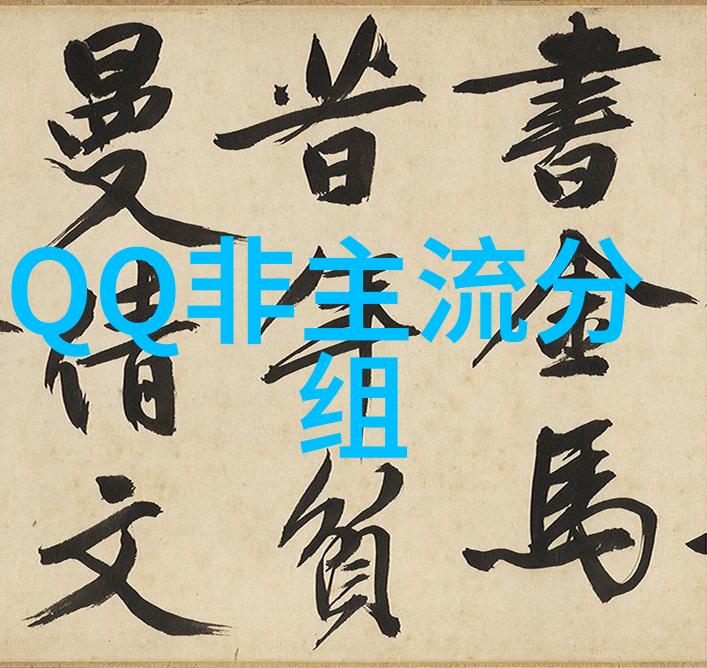 QQ非主流分
组
書金馬
昔年負
曼倩文